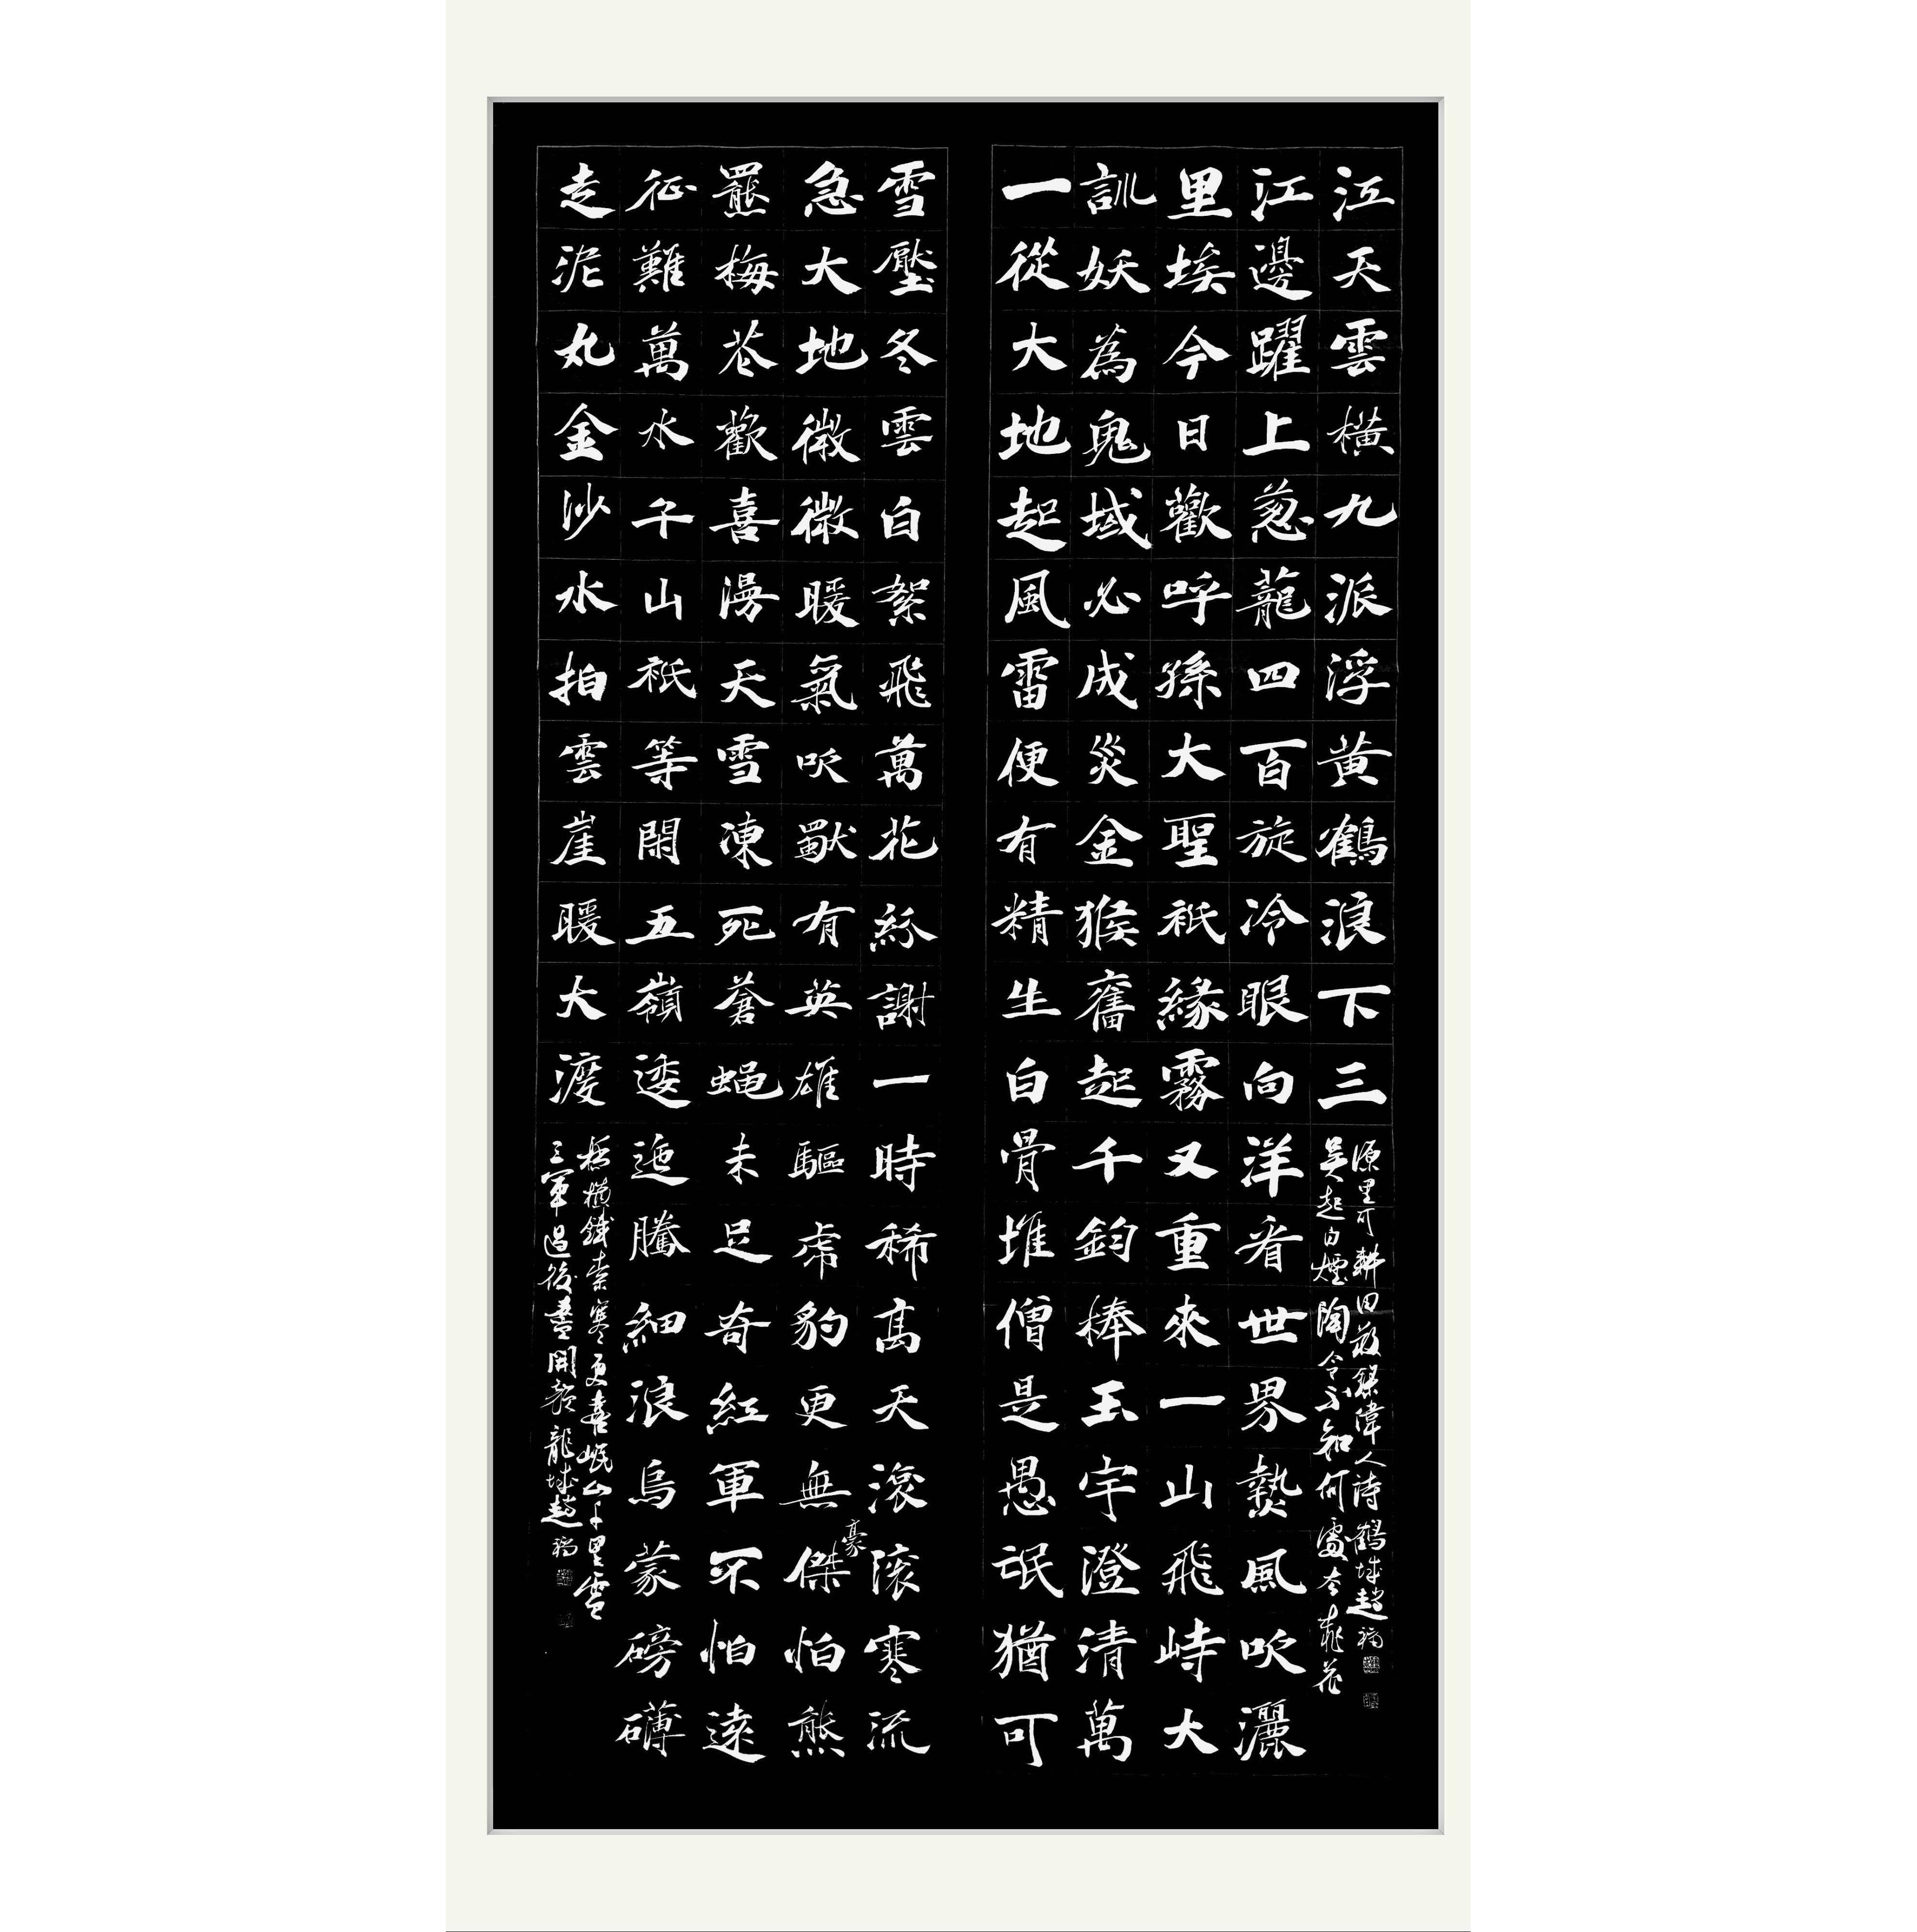 一從大地起風雷便有精生白骨堆僧是愚氓猶可
訓妖為鬼域必成災金猴奮起千鈞棒玉宇澄清萬
里埃今日歡呼孫大聖祇緣霧又重來一山飛峙大
江邊躍上蔥蘢四百旋冷眼向洋看世界熱風吹灑
江天雲橫九派浮黃鶴浪下三
吳起白煙陶令不知何處去桃花
源里可耕田敬錄偉人詩鶴城趙福
雪壓冬雲白絮飛萬花紛謝一時稀高天滾滾寒流
急大地微微暖氣吹獨有英雄驅虎豹更無豪傑怕熊
羆梅花歡喜漫天雪凍死蒼蠅未足奇紅軍不怕遠
征難萬水千山祇等閑五嶺逶迤騰細浪烏蒙磅礴
走泥丸金沙水拍雲崖暖大渡
橋橫鐵索寒更喜岷山千里雪
三軍過後盡開顏龍城趙福